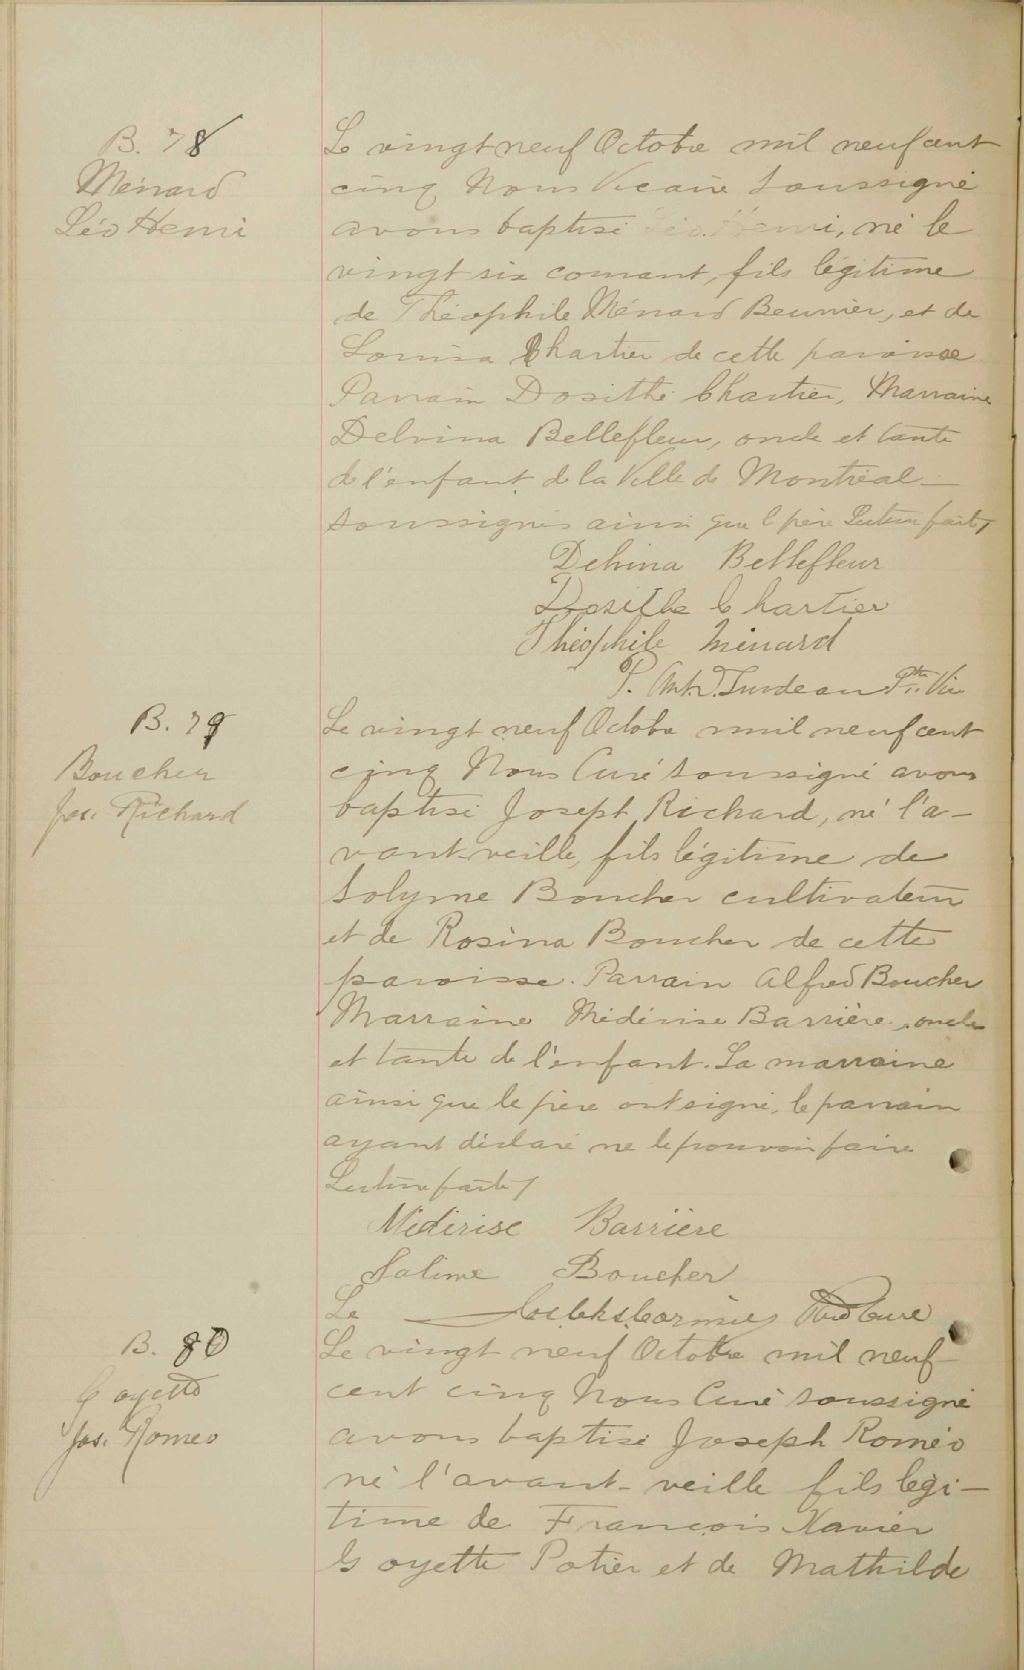 B. 78
Ménard
Léo Henri
Le vingt neuf Octobre mil neuf cent
cinq Nous Vicaire soussigné
avons baptisé Léo Henri, né le
vingt six courant, fils légitime
de Théophile Ménard Beurrier, et de
Louisa Chartier de cette paroisse
Parrain Dosithé Chartier, Marraine
Delvina Bellefleur, oncle et tante
de l'enfant de la Ville de Montréal —
soussignés ainsi que l père Lecture faite
Delvina Bellefleur
Dosithe Chartier
Théophile Ménard
P. Ant. Surdeau Ptre Vic
B. 79
Boucher
Jos. Richard
Le vingt neuf Octobre mil neuf cent
cinq Nous Curé soussigné avons
baptisé Joseph Richard, né l'a-
vant-veille, fils légitime de
Solyme Boucher cultivateur
et de Rosina Boucher de cette
paroisse. Parrain Alfred Boucher
Marraine Médérise Barrière, oncle
et tante de l'enfant. La marraine
ainsi que le père ont signé, le parrain
ayant déclaré ne le pouvoir faire
Lecture faite
Médérise Barrière
Solime Boucher
Le
Curé
B. 80
Goyette
Jos. Romeo
Le vingt neuf Octobre mil neuf-
cent cinq Nous Curé soussigné
avons baptisé Joseph Roméo
né l'avant-veille fils légi-
time de François Xavier
Goyette Potier et de Mathilde